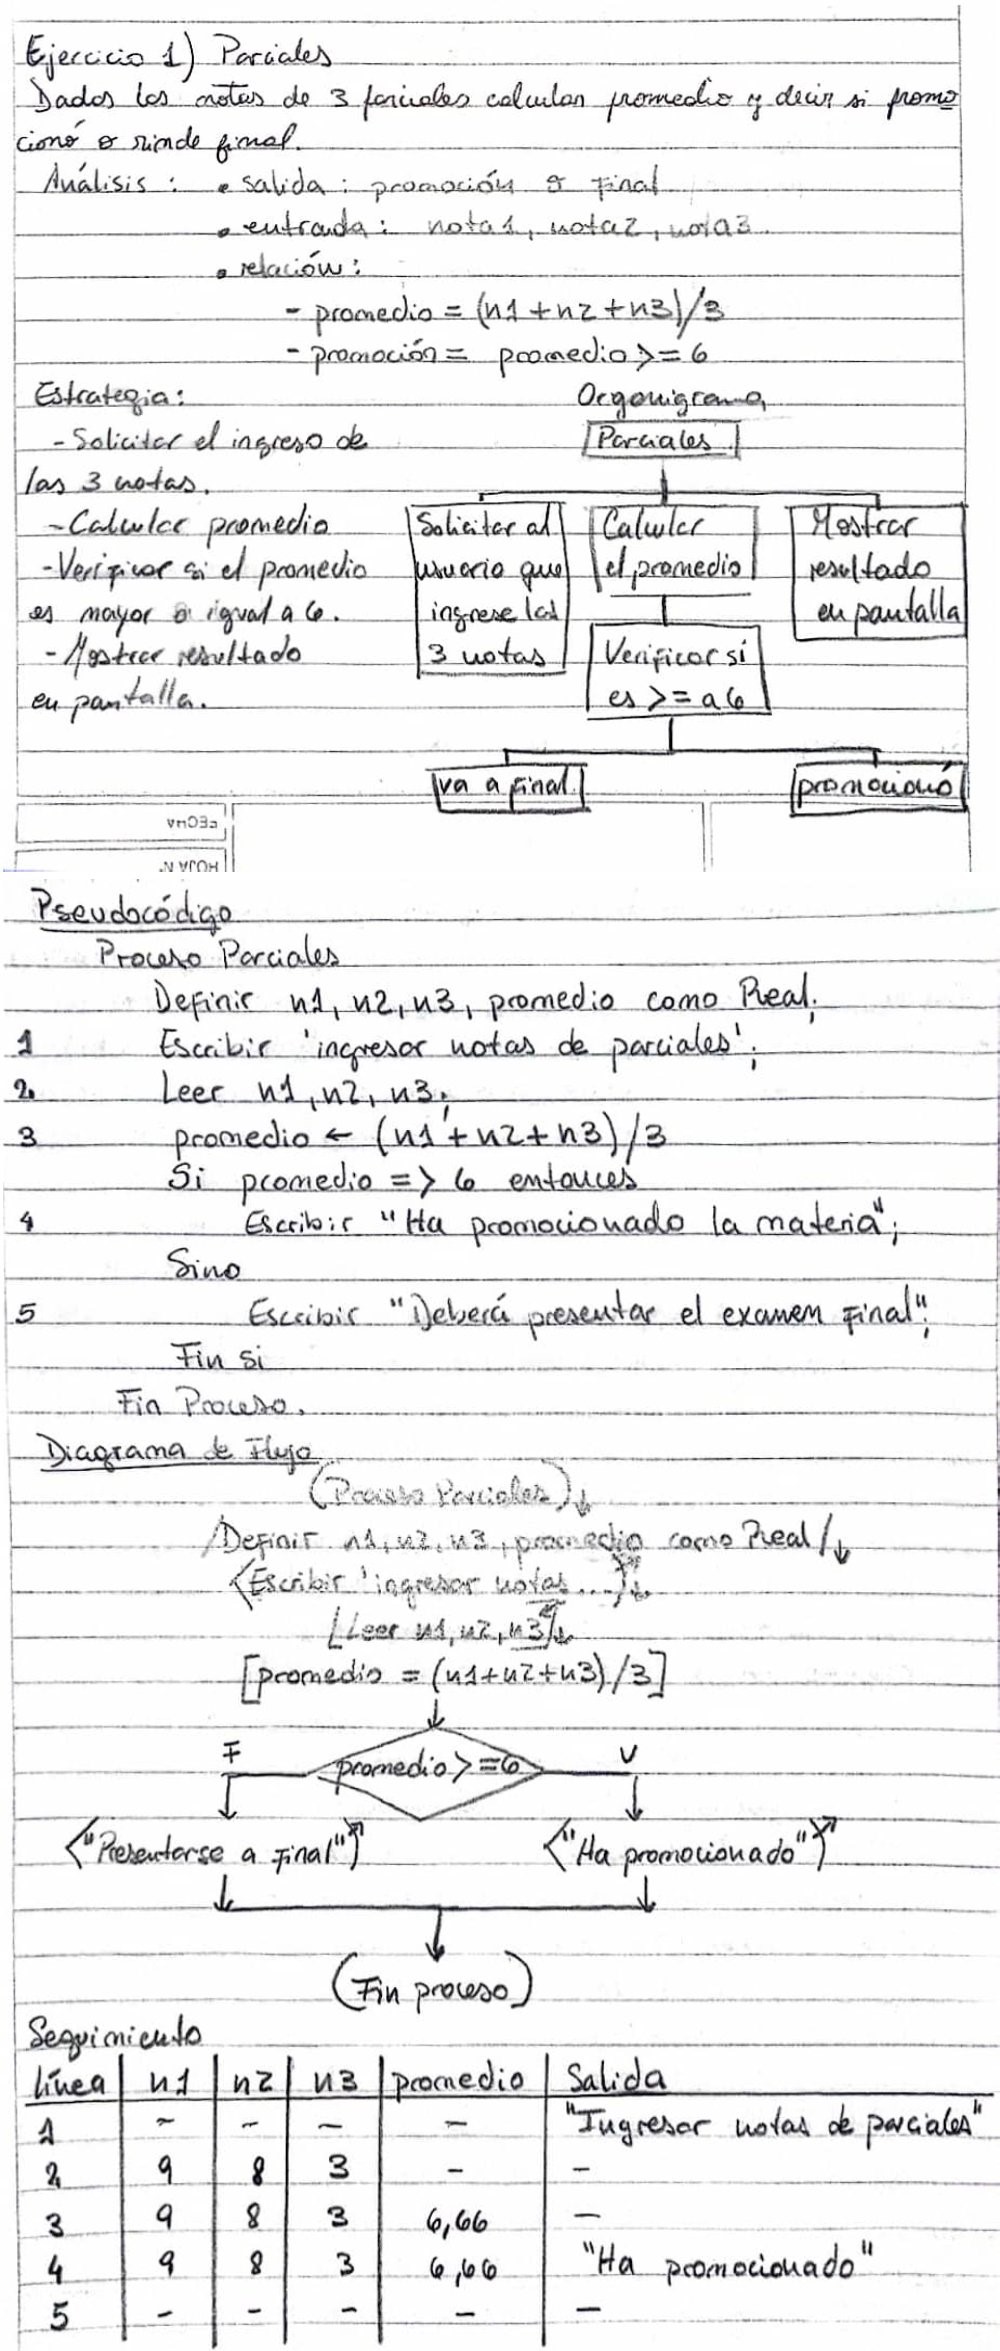 Ejercicio 1) Parciales
Dados las notas de 3 parciales calcular promedio y decir si promo
cionó o rinde final.
Análisis : • salida : promoción o Final
• entrada : nota1, nota2, nota3.
• relación :
- promedio = (n1+n2+n3)/3
- promoción = promedio >= 6
Estrategia:
- Solicitar el ingreso de
las 3 notas.
- Calcular promedio
- Verificar si el promedio
es mayor o igual a 6.
- Mostrar resultado
en pantalla.
Organigrama
Parciales
Solicitar al
usuario que
ingrese las
3 notas
Calcular
el promedio
Mostrar
resultado
en pantalla
Verificar si
es >= a 6
va a final
promocionó
FECHA
HOJA Nº
Pseudocódigo
Proceso Parciales
Definir n1, n2, n3, promedio como Real;
1 Escribir 'ingresar notas de parciales';
2 Leer n1, n2, n3;
3 promedio ← (n1+n2+n3)/3
Si promedio => 6 entonces
4 Escribir "Ha promocionado la materia";
Sino
5 Escribir "Deberá presentar el examen Final";
Fin si
Fin Proceso.
Diagrama de Flujo
(Proceso Parciales)↓
/Definir n1, n2, n3, promedio como Real/↓
<Escribir 'ingresar notas...'↓
Leer n1, n2, n3↓
[promedio = (n1+n2+n3)/3]
F promedio >= 6 V
"Presentarse a Final" "Ha promocionado"
(Fin proceso)
Seguimiento
línea n1 n2 n3 promedio Salida
1 - - - - "Ingresar notas de parciales"
2 9 8 3 - -
3 9 8 3 6,66 -
4 9 8 3 6,66 "Ha promocionado"
5 - - - - -